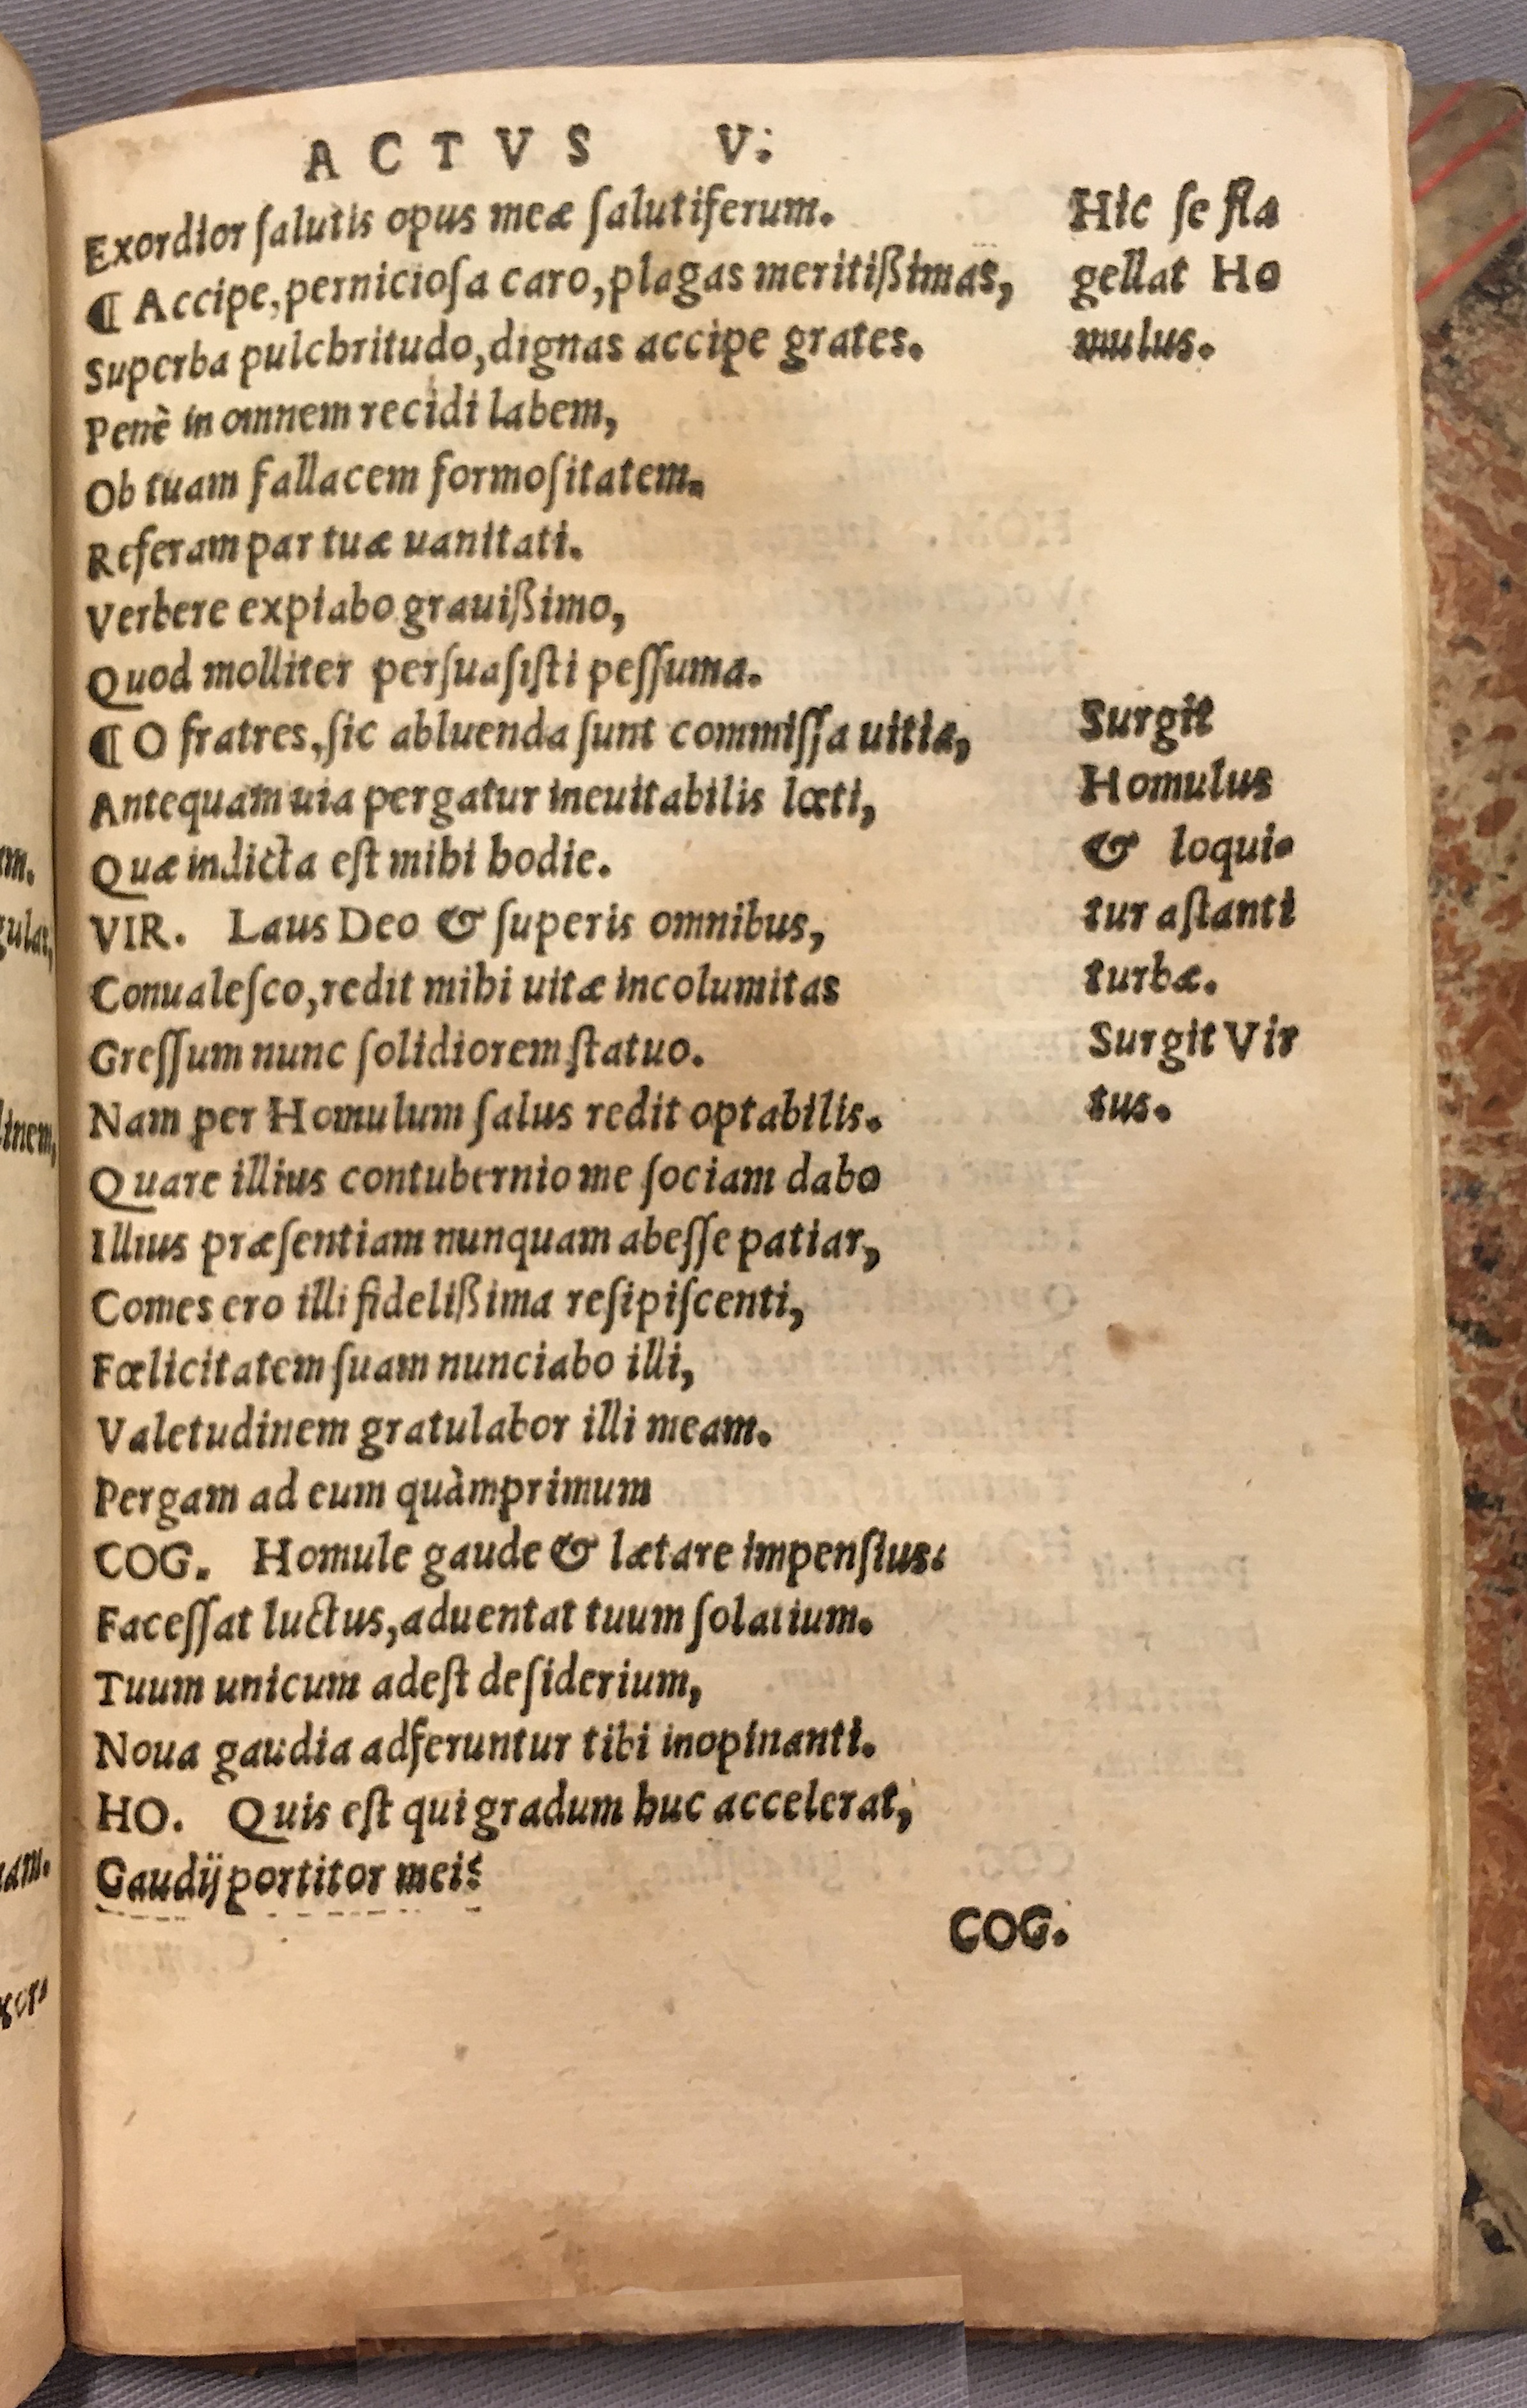 ACTVS V.
Exordior ſalutis opus meæ ſalutiferum.
¶ Accipe, pernicioſa caro, plagas meritißimas,
Superba pulchritudo, dignas accipe grates.
Penè in omnem recidi labem,
Ob tuam fallacem formoſitatem.
Referam par tuæ uanitati.
Verbere expiabo grauißimo,
Quod molliter perſuaſiſti peſſuma.
¶ O fratres, ſic abluenda ſunt commiſſa uitia,
Antequam uia pergatur ineuitabilis lœti,
Quæ indicta eſt mihi hodie.
VIR. Laus Deo & ſuperis omnibus,
Conualeſco, redit mihi uitæ incolumitas
Greſſum nunc ſolidiorem ſtatuo.
Nam per Homulum ſalus redit optabilis.
Quare illius contubernio me ſociam dabo
Illius præſentiam nunquam abeſſe patiar,
Comes ero illi fidelißima reſipiſcenti,
Fœlicitatem ſuam nunciabo illi,
Valetudinem gratulabor illi meam.
Pergam ad eum quàmprimum
COG. Homule gaude & lætare impenſius.
Faceſſat luctus, aduentat tuum ſolatium.
Tuum unicum adeſt deſiderium,
Noua gaudia adferuntur tibi inopinanti.
HO. Quis eſt qui gradum huc accelerat,
Gaudij portitor mei?
COG.
Hic ſe fla
gellat Ho
mulus.
Surgit
Homulus
& loqui-
tur aſtanti
turbæ.
Surgit Vir
tus.
am.
gular,
linem,
uam.